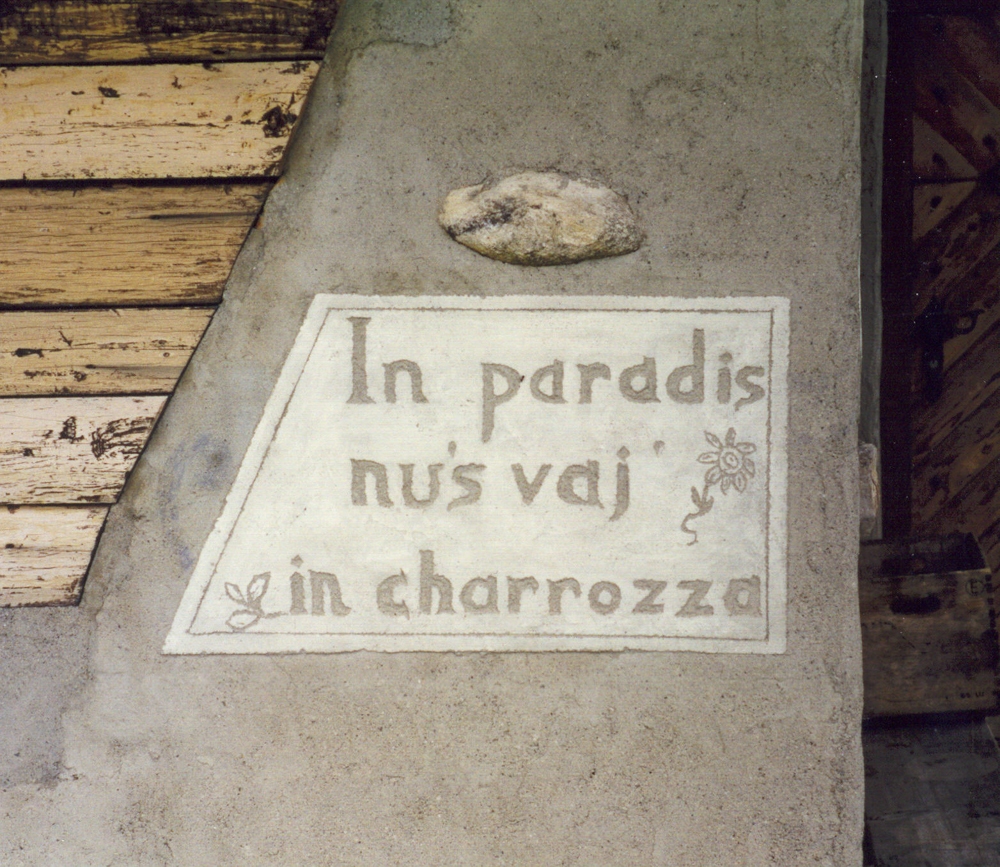 In paradis
nu's vaj'
in charrozza